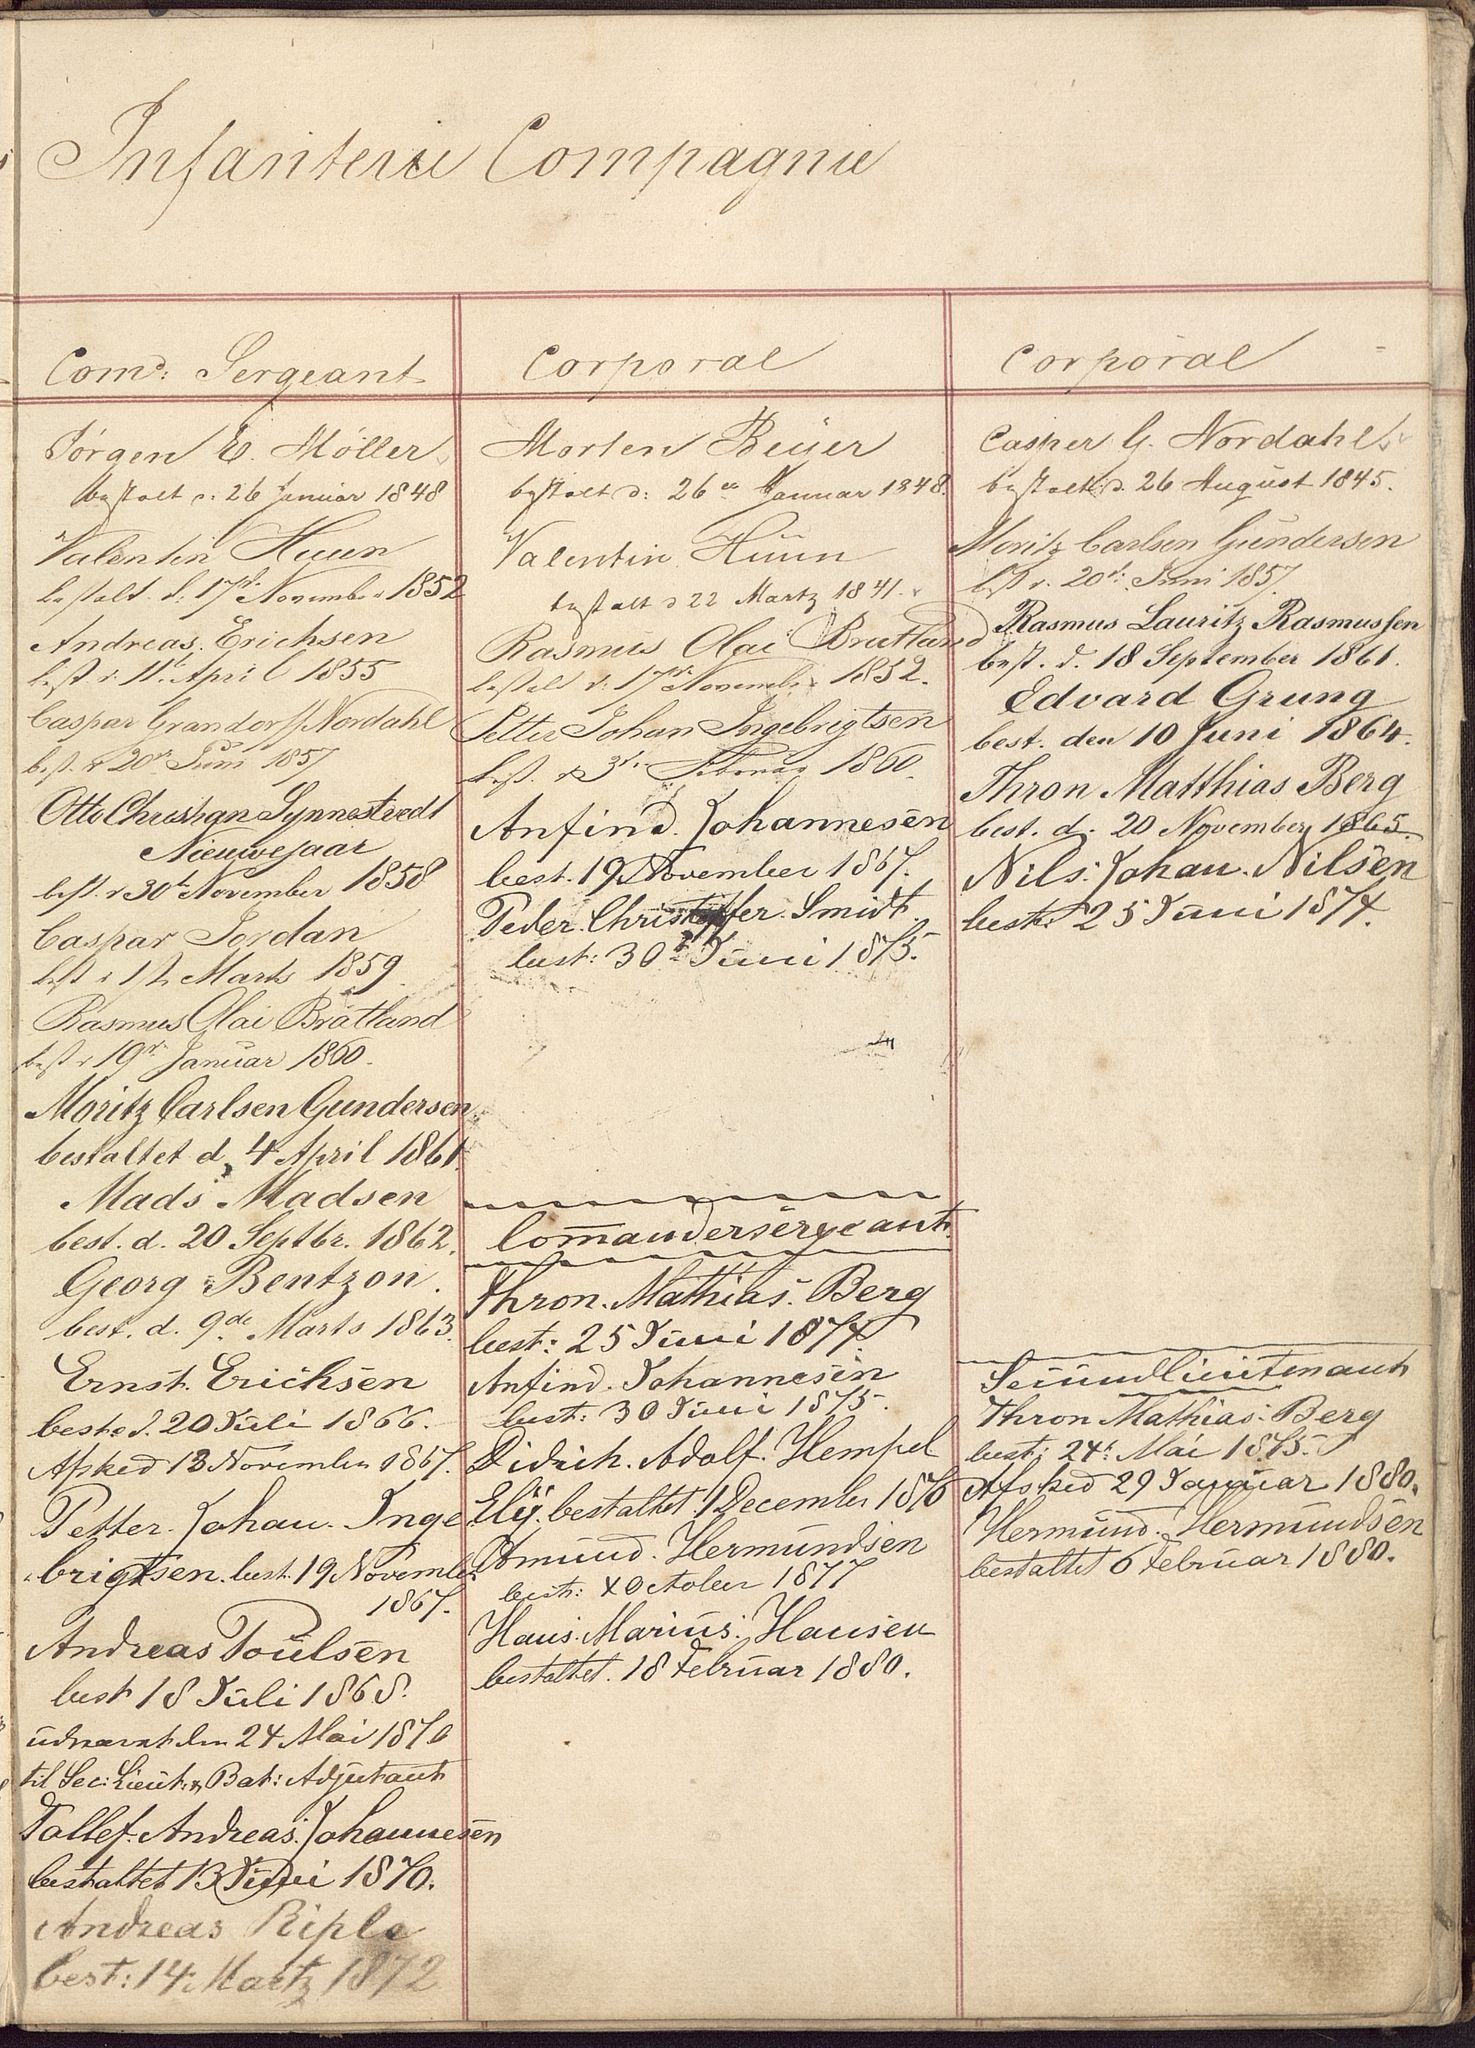 Infanterie Compagnie
Comd: Sergeant
Jørgen E. Møller
bestalt d: 26 Januar 1848
Valentin Huun
bestalt d: 17de November 1852
Andreas Erichsen
best d: 11te April 1855
Caspar Grandorff Nordahl
best. d 20de Juni 1857
Otto Christian Synnestvedt
Nieuwejaar
best. d 30te November 1858
Caspar Jordan
best d 17 Marts 1859
Rasmus Olai Bratland
best d 19de Januar 1860.
Moritz Carlsen Gundersen
bestaltet d. 4 April 1861
Mads Madsen
best. d. 20 Septbr. 1862.
Georg Bentzon.
best. d. 9de Marts 1863.
Ernst. Erichsen
best: d. 20 Juli 1866.
Afsked 13 November 1867.
Petter. Johan. Inge
brigtsen. best. 19 Novembr
1867.
Andreas Poulsen
best 18 Juli 1868.
udnævnt den 24 Mai 1870
til Sec: Lieut: & Bat: Adjutant
Tallef. Andreas. Johannesen
bestaltet 13 Juni 1870.
Andreas Riple
best: 14: Martz 1872
Corporal
Morten Beyer
bestalt d: 26de Januar 1848.
Valentin Huun
bestalt d 22 Martz 1841.
Rasmus Olai Bratland
bestalt d: 17de November 1852.
Petter Johan Ingebrigtsen
best. d. 3de Februar 1860.
Anfind. Johannesen
best. 19 November 1867.
Peder. Christoffer. Smidt.
best: 30te Juni 1875.
Comandersergeant.
Thron. Mathias. Berg
best: 25 Juni 1874.
Anfind. Johannesen
best: 30 Juni 1875.
Didrich. Adolf. Hempel
Elij. bestaltet 1 December 1876
Omund. Hermundsen
best: 4 October 1877
Hans. Marius. Hansen
bestaltet. 18 Februar 1880.
Corporal
Casper G. Nordahl
bestalt: d. 26 August 1845.
Moritz Carlsen Gundersen
best d. 20de Juni 1857
Rasmus Lauritz Rasmussen
best. d. 18 September 1861.
Edvard Grung
best. den 10 Juni 1864.
Thron Matthias Berg
best. d. 20 November 1865.
Nils. Johan. Nilsen
best: 25 Juni 1874.
Secundlieutenant
Thron Mathias. Berg
best: 24: Mai 1875.
Afsked 29 Januar 1880.
Hermund. Hermundsen
bestaltet 6 Februar 1880.